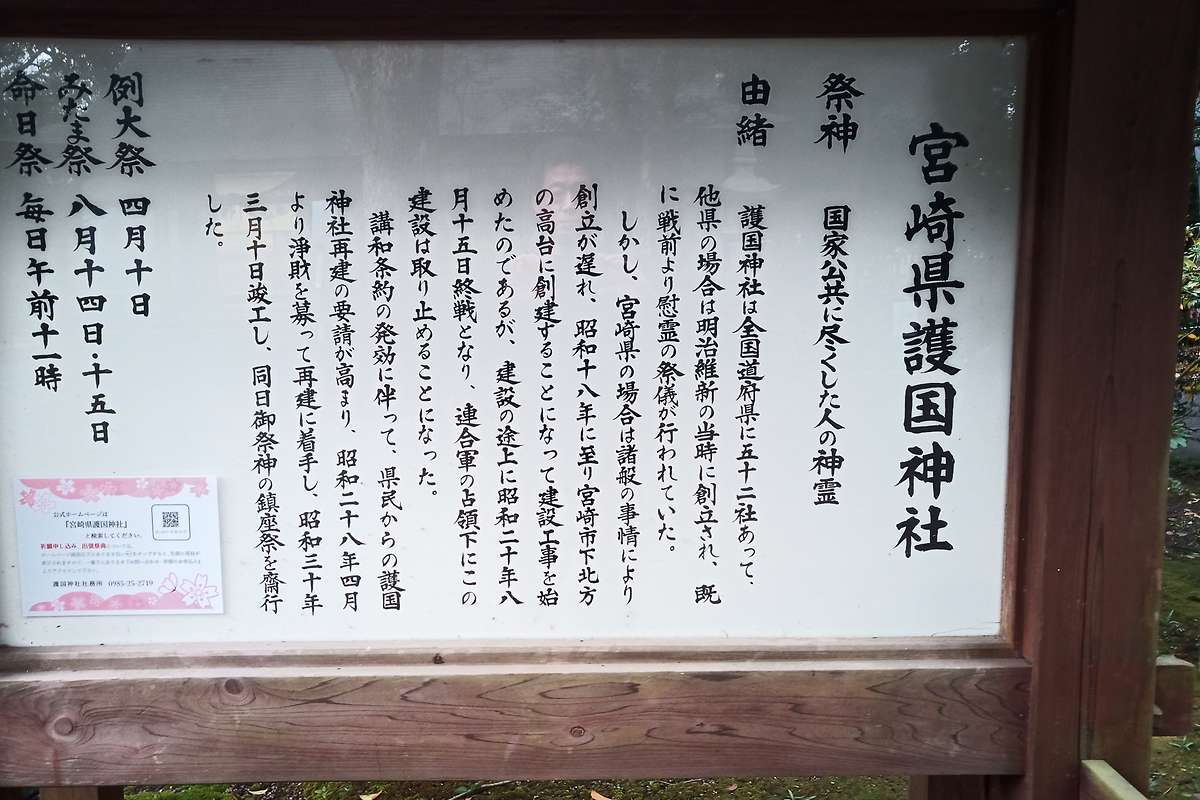 宮崎県護国神社
祭神　国家公共に尽くした人の神霊
由緒
護国神社は全国道府県に五十二社あって、
他県の場合は明治維新の当時に創立され、既
に戦前より慰霊の祭儀が行われていた。
しかし、宮崎県の場合は諸般の事情により
創立が遅れ、昭和十八年に至り宮崎市下北方
の高台に創建することになって建設工事を始
めたのであるが、建設の途上に昭和二十年八
月十五日終戦となり、連合軍の占領下にこの
建設は取り止めることになった。
講和条約の発効に伴って、県民からの護国
神社再建の要請が高まり、昭和二十八年四月
より浄財を募って再建に着手し、昭和三十年
三月十日竣工し、同日御祭神の鎮座祭を斎行
した。
例大祭　四月十日
みたま祭　八月十四日・十五日
命日祭　毎日午前十一時
公式ホームページは
『宮崎県護国神社』
と検索してください。
祈願申し込み、出張祭典については、
護国神社社務所　0985-25-2719